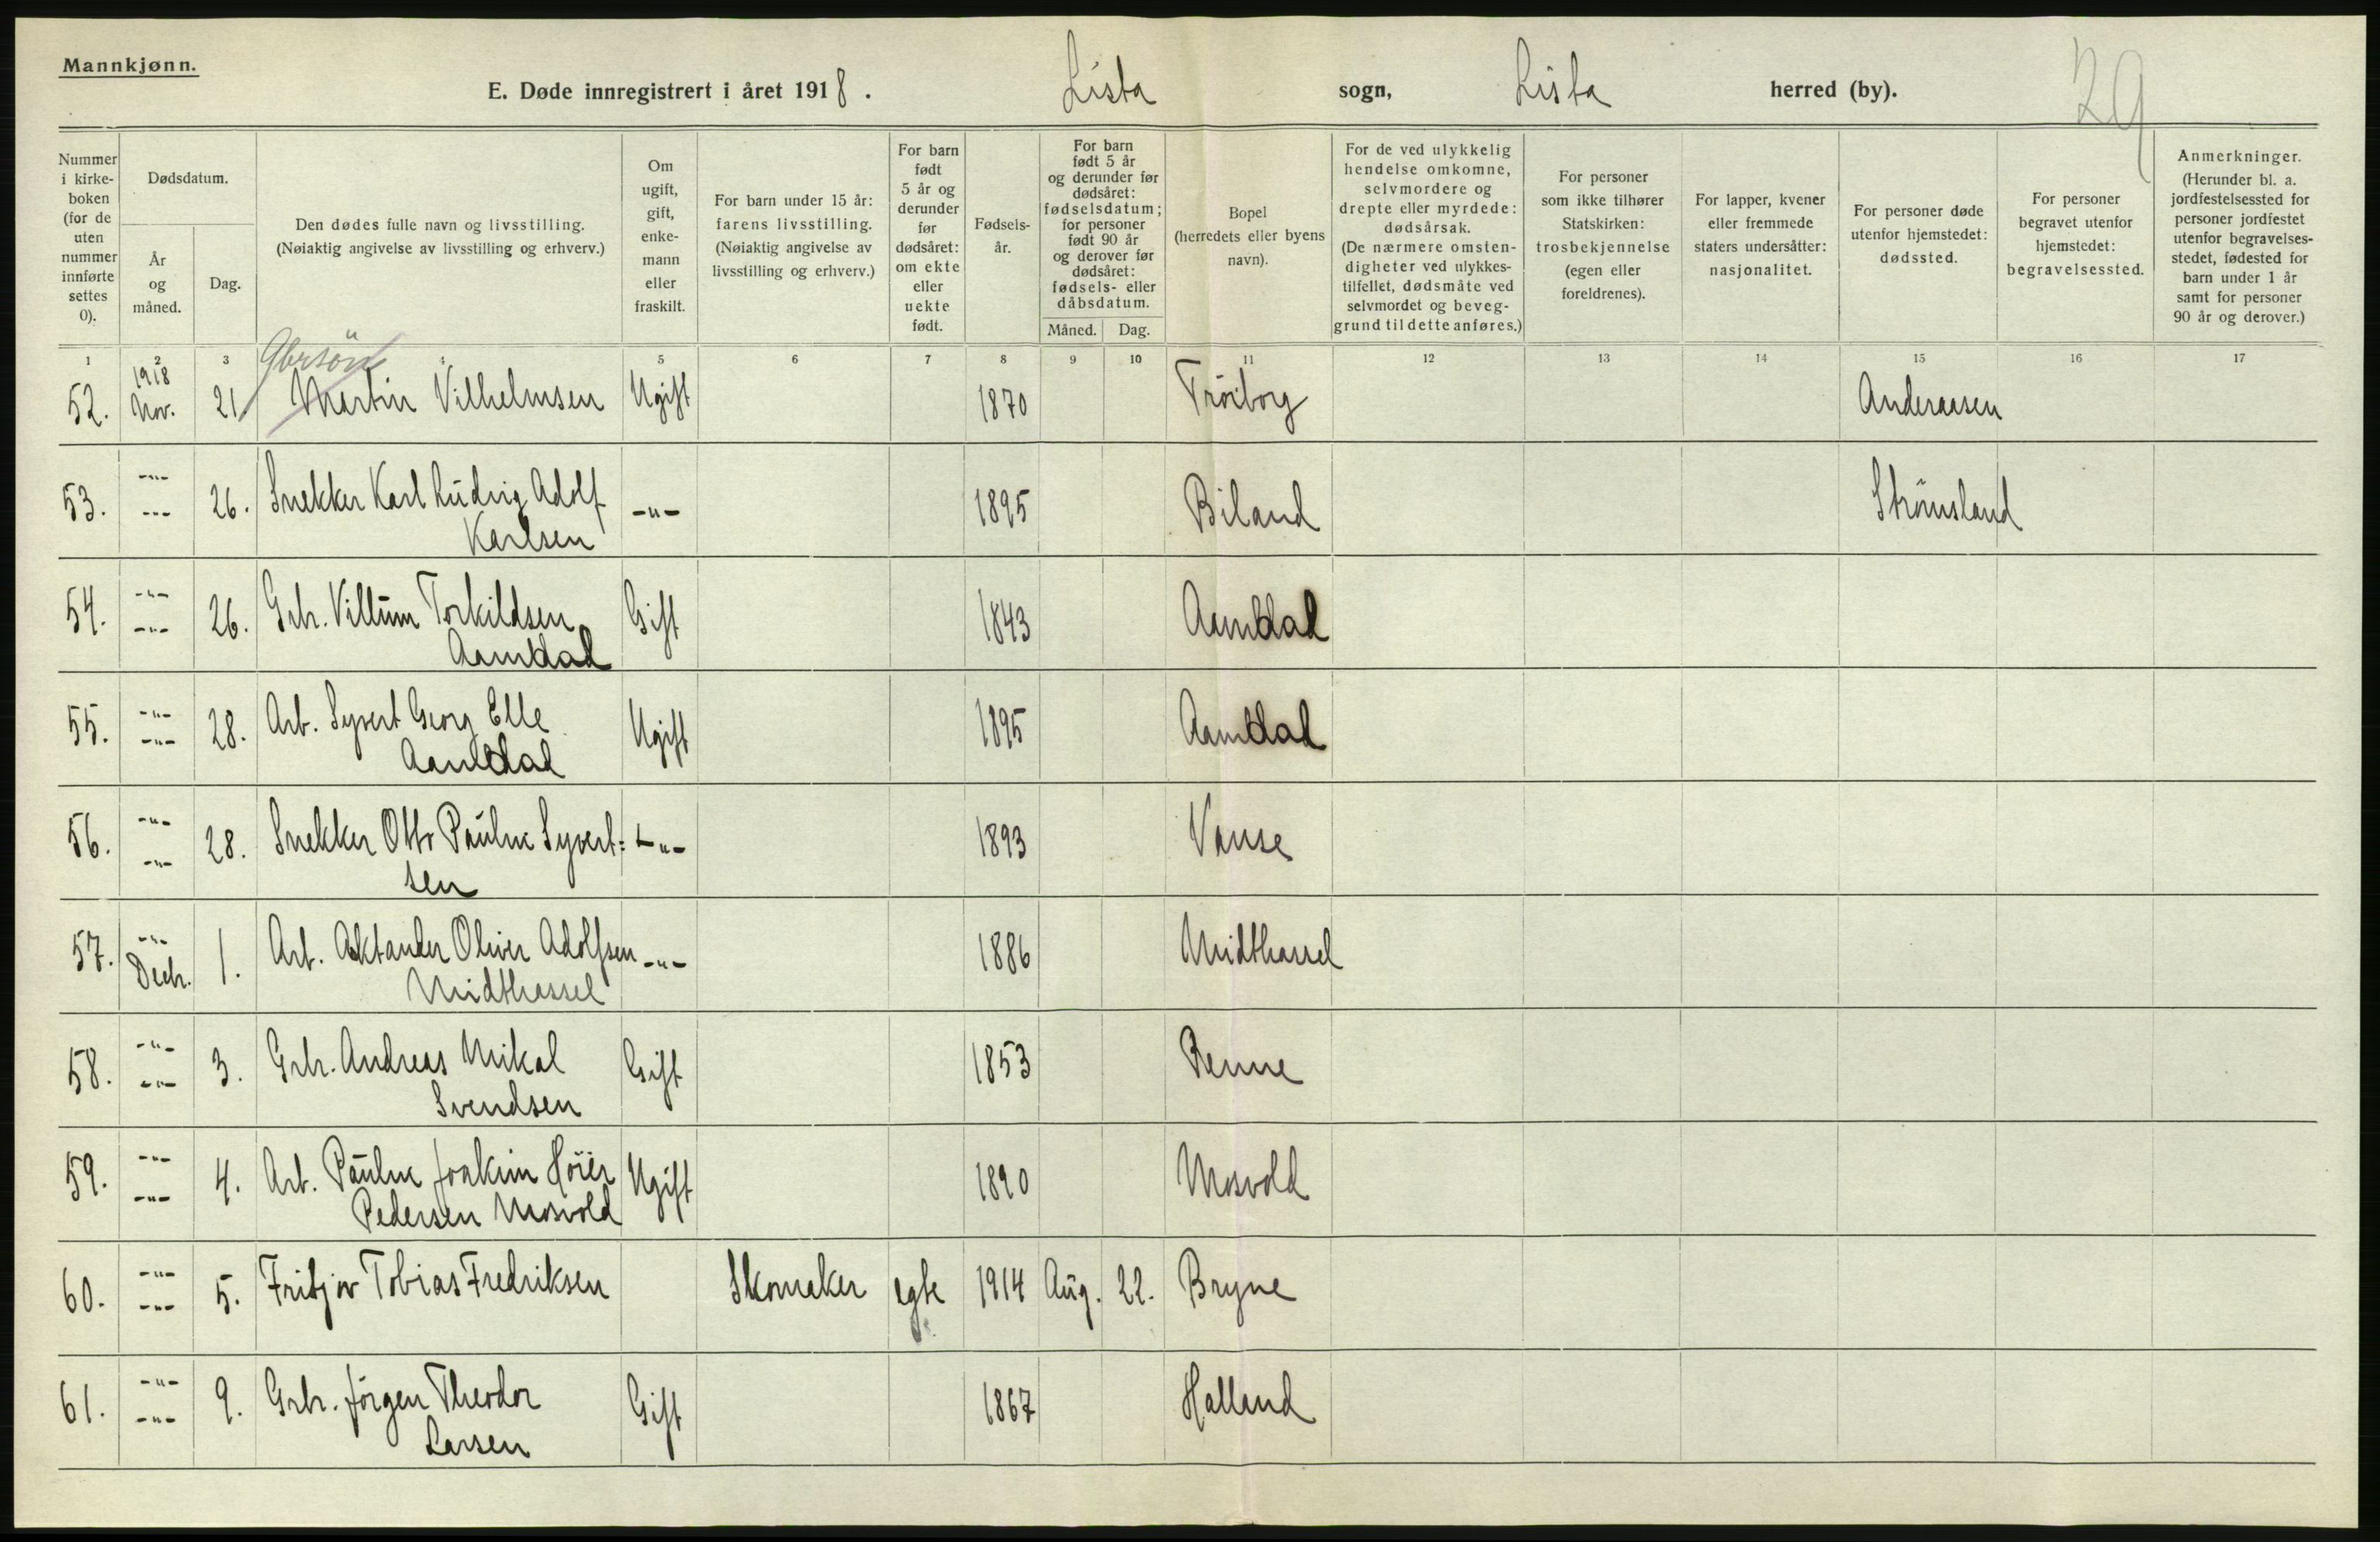 Mannkjønn.
E. Døde innregistrert i året 1918. Lista sogn, Lista herred (by). 29
Nummer i kirke-boken (for de uten nummer innførte settes 0).
Dødsdatum.
År og måned.
Dag.
Den dødes fulle navn og livsstilling.
(Nøiaktig angivelse av livsstilling og erhverv.)
Om ugift, gift, enke-mann eller fraskilt.
For barn under 15 år: farens livsstilling.
(Nøiaktig angivelse av livsstilling og erhverv.)
For barn født 5 år og derunder før dødsåret: om ekte eller uekte født.
Fødsels-år.
For barn født 5 år og derunder før dødsåret: fødselsdatum; for personer født 90 år og derover før dødsåret: fødsels- eller dåbsdatum.
Måned. Dag.
Bopel (herredets eller byens navn).
For de ved ulykkelig hendelse omkomne, selvmordere og drepte eller myrdede: dødsårsak.
(De nærmere omsten-digheter ved ulykkes-tilfellet, dødsmåte ved selvmordet og beveg-grund til dette anføres.)
For personer som ikke tilhører Statskirken: trosbekjennelse (egen eller foreldrenes).
For lapper, kvener eller fremmede staters undersåtter: nasjonalitet.
For personer døde utenfor hjemstedet: dødssted.
For personer begravet utenfor hjemstedet: begravelsessted.
Anmerkninger.
(Herunder bl. a. jordfestelsessted for personer jordfestet utenfor begravelses-stedet, fødested for barn under 1 år samt for personer 90 år og derover.)
1 2 3 4 5 6 7 8 9 10 11 12 13 14 15 16 17
Gbrsön
52. 1918 Nov. 21. Martin Vilhelmsen Ugift 1870 Tröiborg Anderaasen
53. -"- -"- 26. Snekker Karl Ludvig Adolf Karlsen -"- 1895 Biland Strömsland
54. -"- -"- 26. Grbr. Villum Torkildsen Aamdal Gift 1843 Aamdal
55. -"- -"- 28. Arb. Syvert Georg Elle Aamdal Ugift 1895 Aamdal
56. -"- -"- 28. Snekker Otto Pauline Syvert: sen -"- 1893 Vanse
57. -"- Decbr. 1. Arb. Oliver Adolfsen Midthassel -"- 1886 Midthassel
58. -"- -"- 3. Grbr. Andreas Mikal Svendsen Gift 1853 Penne
59. -"- -"- 4. Arb. Joakim Höier Pedersen Mosvold Ugift 1890 Mosvold
60. -"- -"- 5. Fritjov Tobias Fredriksen Skomaker egte 1914 Aug. 22. Bryne
61. -"- -"- 9. Grbr. Jörgen Theodor Larsen Gift 1867